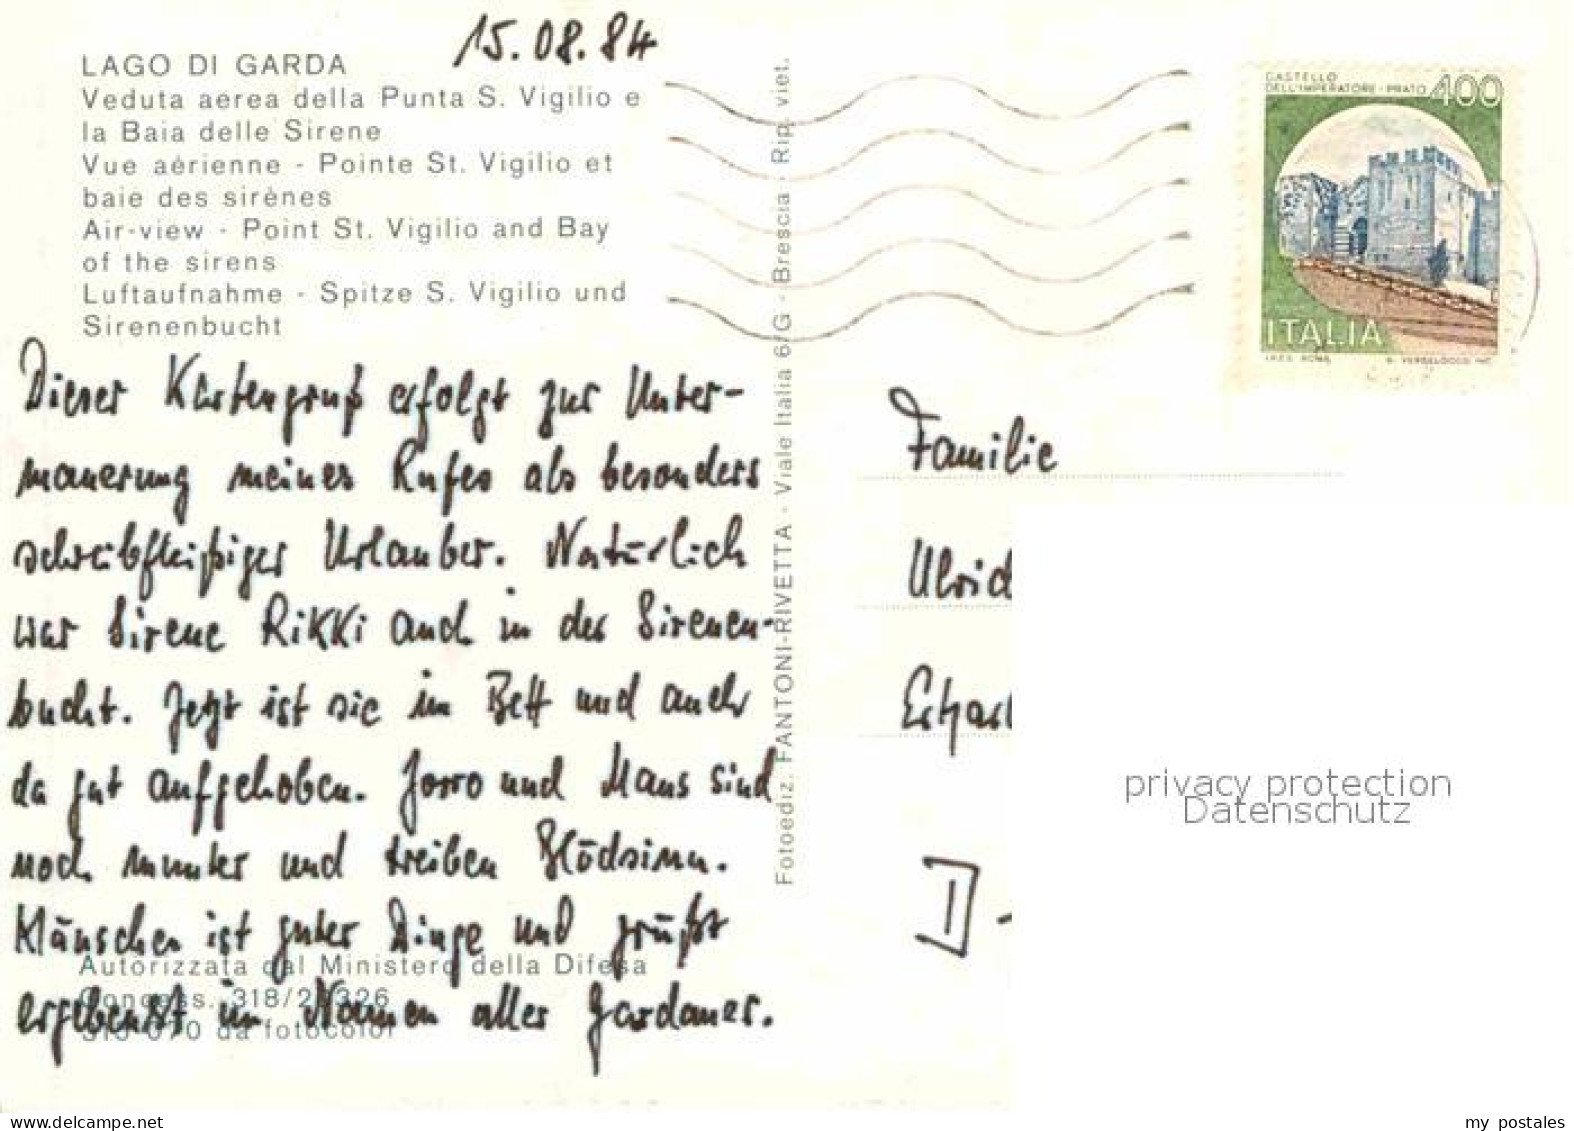 15.08.84
LAGO DI GARDA
Veduta aerea della Punta S. Vigilio e
la Baia delle Sirene
Vue aérienne - Pointe St. Vigilio et
baie des sirènes
Air-view - Point St. Vigilio and Bay
of the sirens
Luftaufnahme - Spitze S. Vigilio und
Sirenenbucht
Dieser Kartengruß erfolgt zur Unter-
mauerung meines Rufes als besonders
schreibfleißiger Urlauber. Natürlich
war Sirene RiKKi auch in der Sirenen-
bucht. Jetzt ist sie im Bett und auch
da gut aufgehoben. Jorro und Maus sind
noch munter und treiben Blödsinn.
Mäuschen ist guter Dinge und grüßt
ergebenst im Namen aller Gardaner.
Autorizzata dal Ministero della Difesa
Concess. 318/
da fotocolor
Fotoediz. FANTONI-RIVETTA - Viale Italia 6/G - Brescia - Rip. viet.
CASTELLO
DELL'IMPERATORE - PRATO 400
ITALIA
I.P.Z.S. ROMA
Familie
Ulrich
D-
privacy protection
Datenschutz
my postales